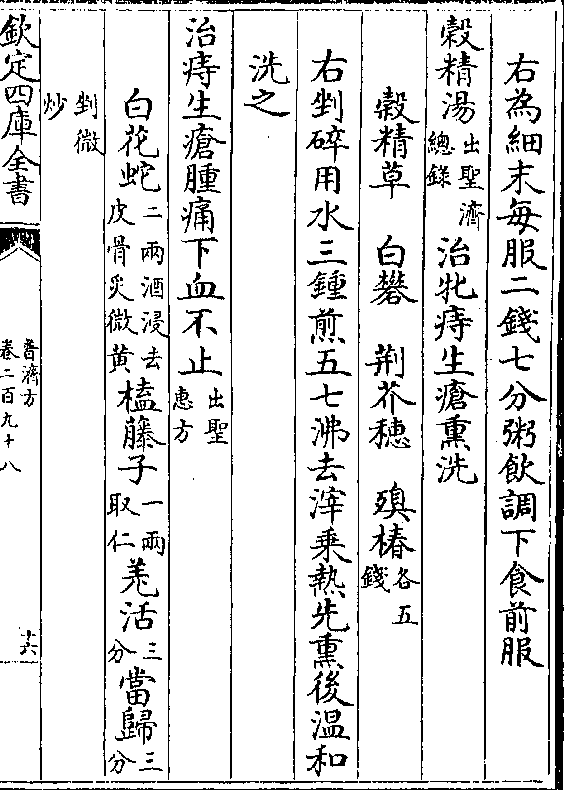 右為細末每服二錢七分粥飲調下食前服
榖精湯出聖濟總錄治牝痔生瘡熏洗
榖精草　白礬　荆芥穗　臭椿各五錢
右剉碎用水三鍾煎五七沸去滓乗熱先熏後温和
洗之
治痔生瘡腫痛下血不止出聖惠方
白花蛇二兩酒浸去皮骨炙微黄榼藤子一兩取仁羌活三分當歸三分
剉微炒
欽定四庫全書
普濟方
卷二百九十八
十六